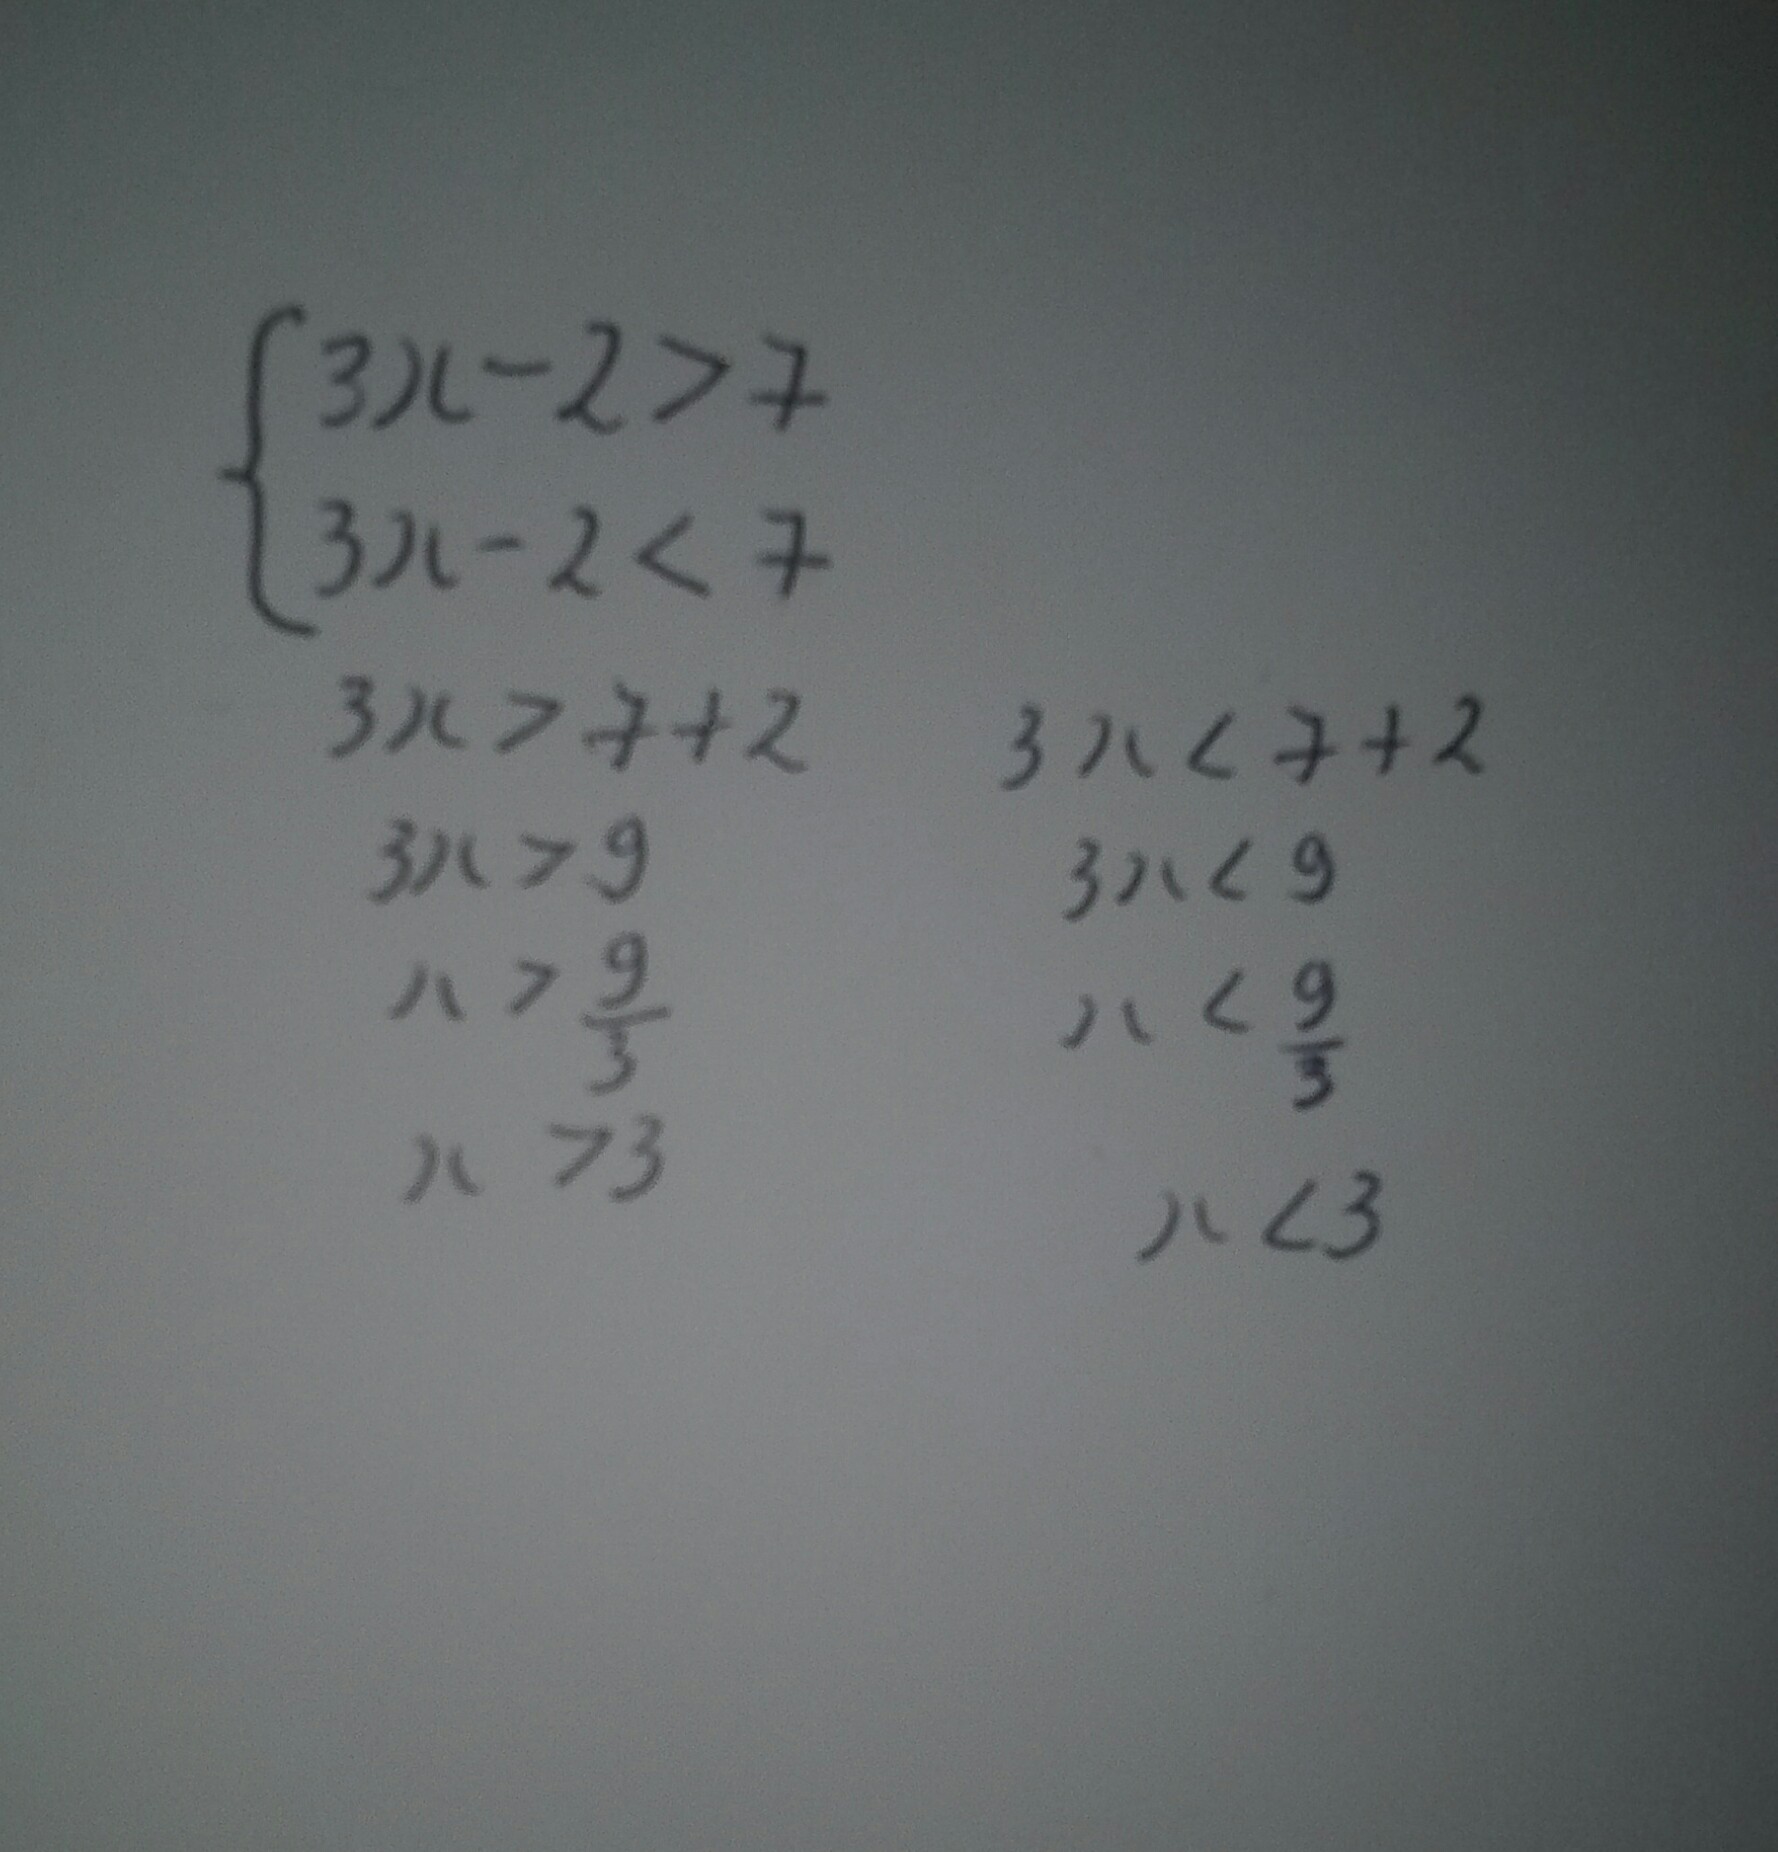 3x-2>7
3x-2<7
3x>7+2
3x>9
x>9/3
x>3
3x<7+2
3x<9
x<9/3
x<3